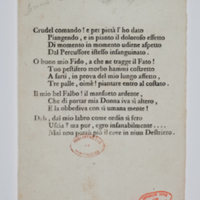 Crudel comando! e per pietà l' ho dato
Piangendo, e in pianto il doloroso effetto
Di momento in momento usitene aspetto
Dal Percussore istesso insanguinato.
O buon mio Fido, a che ne tragge il Fato!
Tuo pestifero morbo hammi costretto
A farti, in prova del mio lungo affetto,
Tre palle, oimè! piantare entro al costato.
Il mio bel Falbo! il mansueto ardente,
Che di portar mia Donna iva sì altero,
E la obbediva con sì umana mente!
Deh, dal mio labro come ordin sì fero
Uscia? ma pur, egro insanabilmente....
Mai non potrà più il cove in mio Destriero.